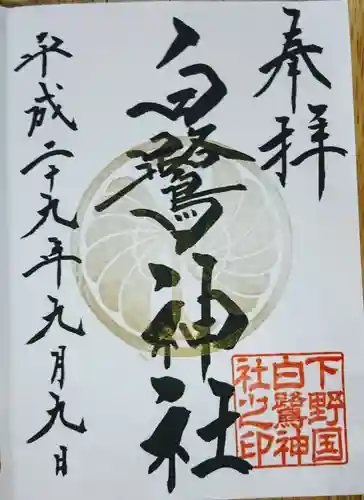 奉拝
下野国
白鷺神
社之印
白鷺神社
平成二十九年九月九日